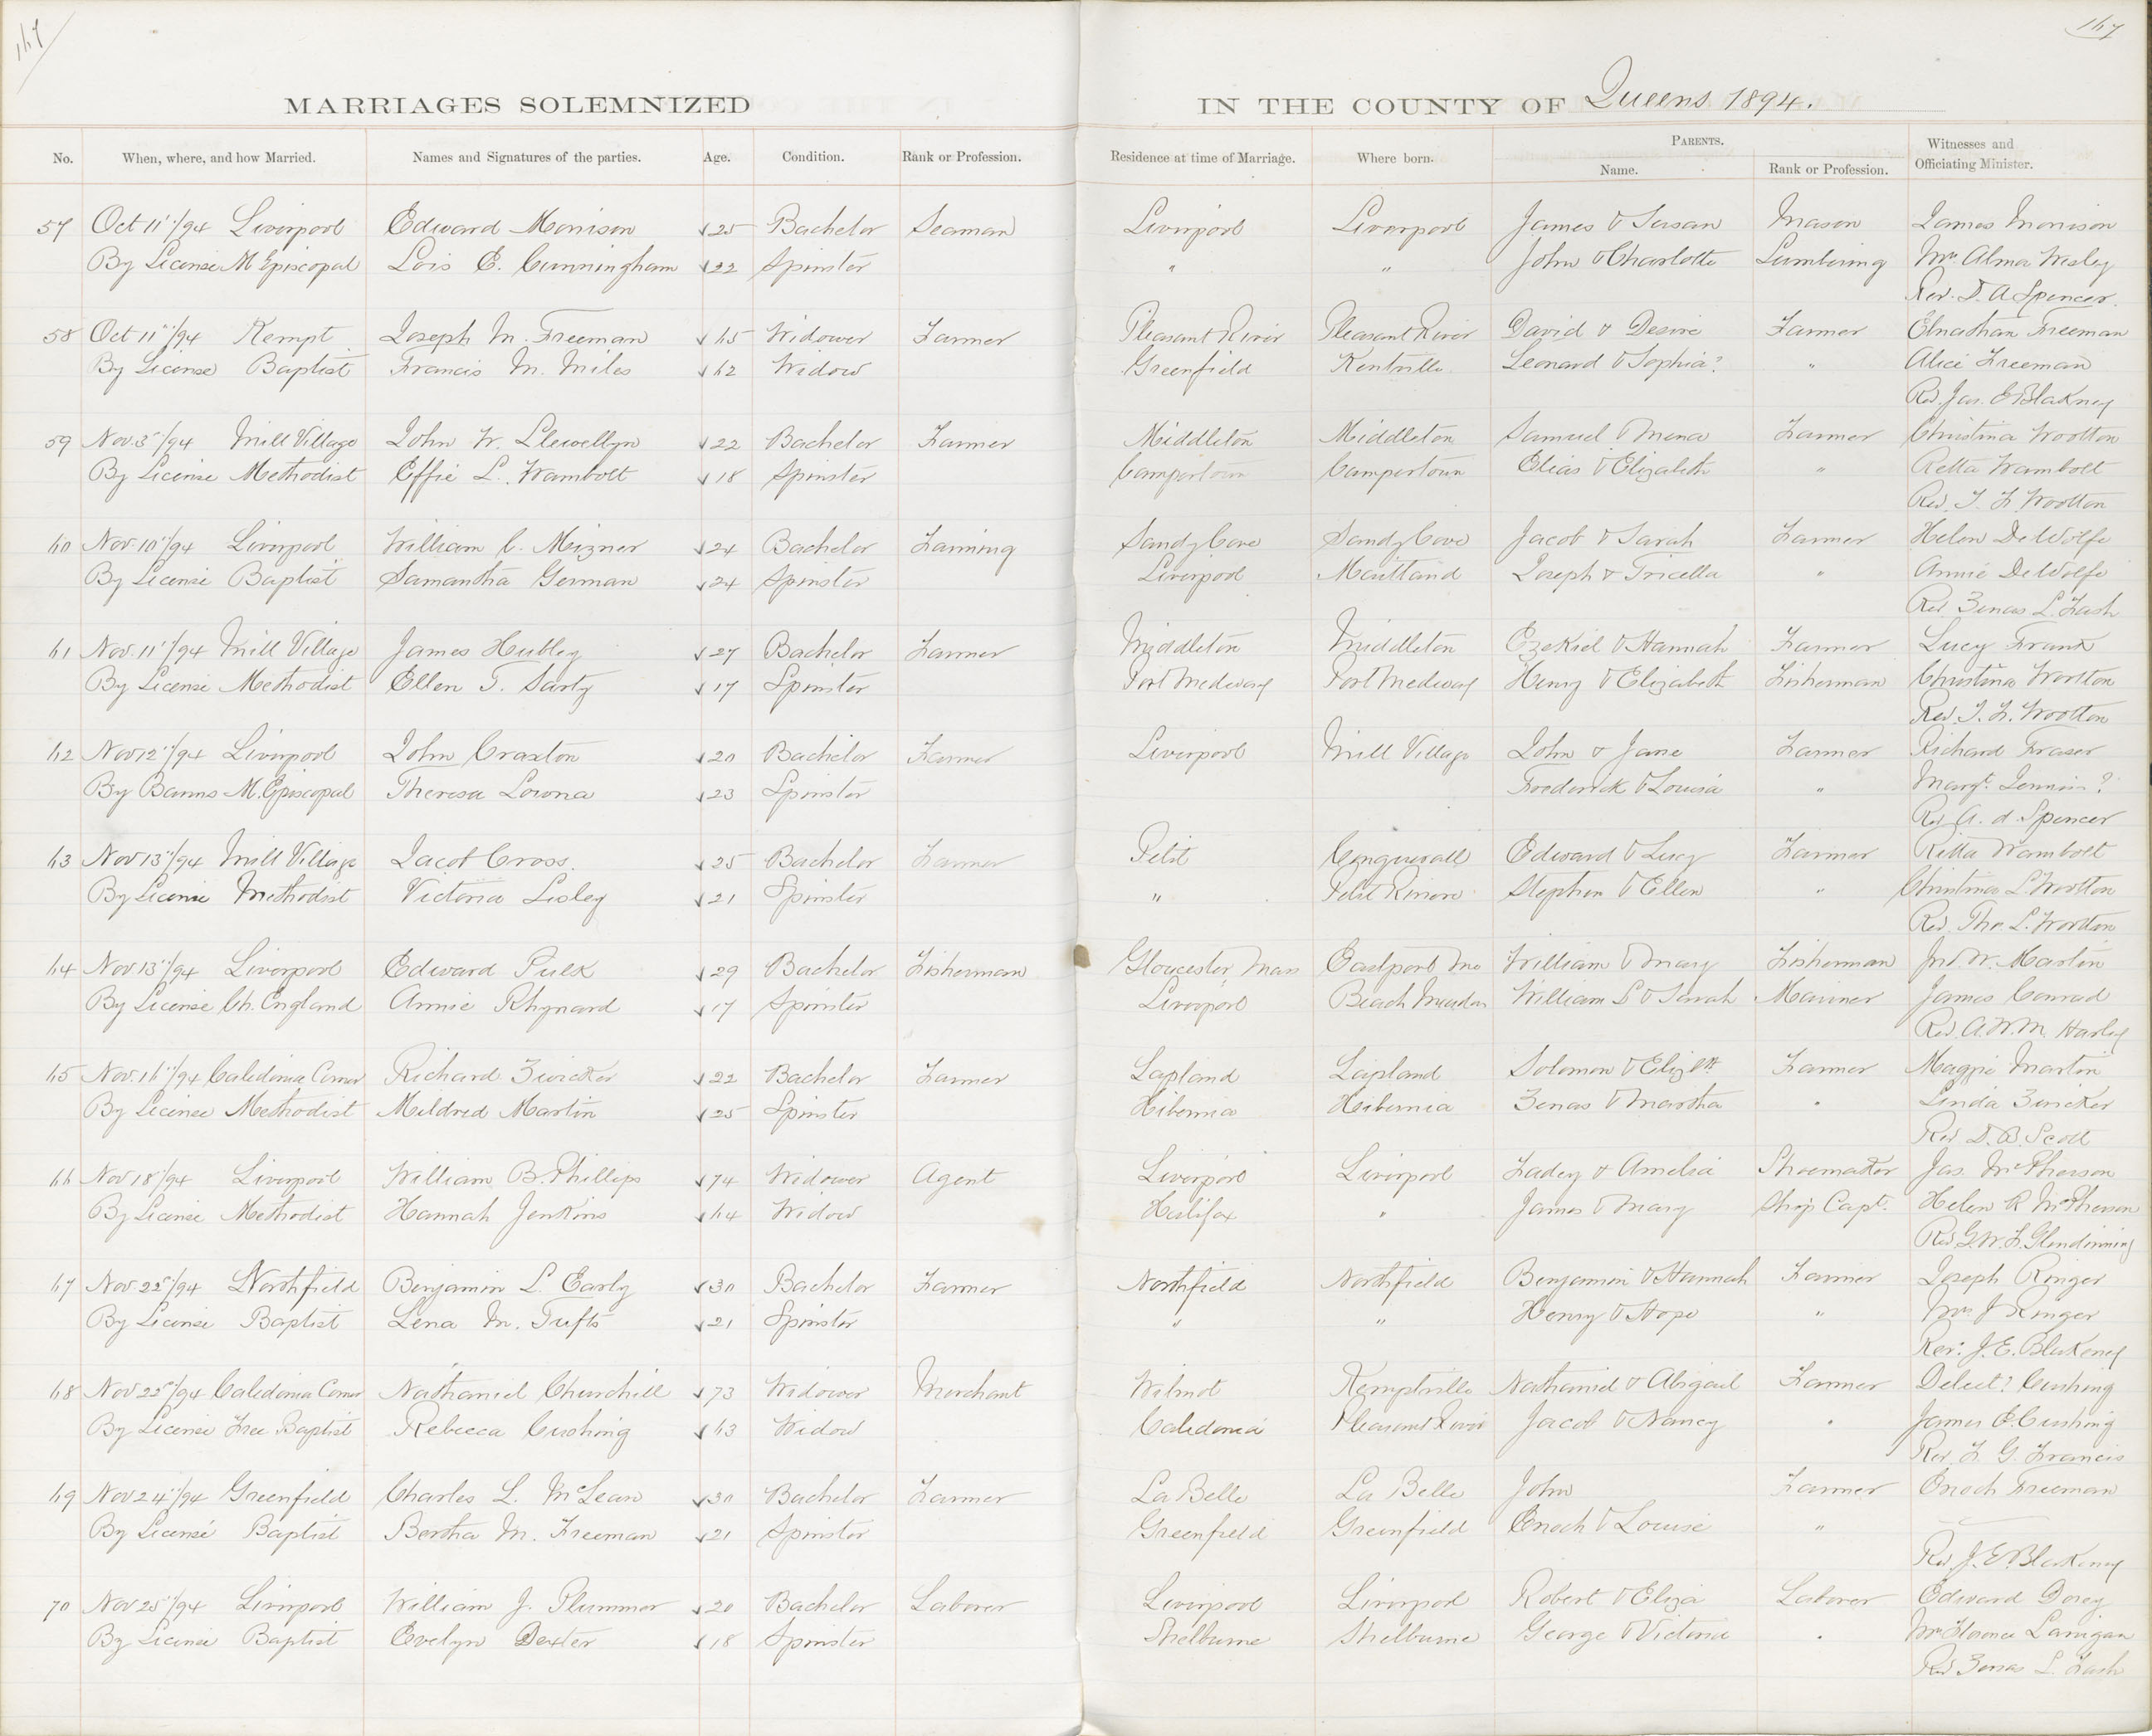 167
167
MARRIAGES SOLEMNIZED IN THE COUNTY OF Queens 1894.
No. When, where, and how Married. Names and Signatures of the parties. Age. Condition. Rank or Profession. Residence at time of Marriage. Where born. PARENTS. Name. Rank or Profession. Witnesses and Officiating Minister.
57 Oct 11"/94 Liverpool Edward Morrison 25 Bachelor Seaman Liverpool Liverpool James & Susan Mason James Morrison
By License M Episcopal Lois E. Cunningham 22 Spinster " " John & Charlotte Lumbering Mrs Alma Wesley
Rev. D. A Spencer.
58 Oct 11"/94 Kempt Joseph M. Freeman 65 Widower Farmer Pleasant River Pleasant River David & Desire Farmer Elnathan Freeman
By License Baptist Francis M. Miles 62 Widow Greenfield Kentville Leonard & Sophia? " Alice Freeman
Rev. Jas. E Blakney
59 Nov. 3"/94 Mill Village John W. Llewellyn 22 Bachelor Farmer Middleton Middleton Samuel & Mena Farmer Christina Wootton
By License Methodist Effie L. Wambolt 18 Spinster Campertown Campertown Elias & Elizabeth " Retta Wambolt
Rev. T. F. Wootton
60 Nov. 10"/94 Liverpool William C. Mizner 24 Bachelor Farming Sandy Cove Sandy Cove Jacob & Sarah Farmer Helen DeWolfe
By License Baptist Samantha German 24 Spinster Liverpool Maitland Joseph & Tricella " Annie DeWolfe
Rev Zenas L. Fash
61 Nov. 11"/94 Mill Village James Hubley 27 Bachelor Farmer Middleton Middleton Ezekiel & Hannah Farmer Lucy Frank
By License Methodist Ellen T. Sarty 17 Spinster Port Medway Port Medway Henry & Elizabeth Fisherman Christina Wootton
Rev. T. F. Wootton
62 Nov 12"/94 Liverpool John Craxton 20 Bachelor Farmer Liverpool Mill Village John & Jane Farmer Richard Fraser
By Banns M. Episcopal Theresa Lowna 23 Spinster Frederick & Louisa " Margt. ?
Rev A. d. Spencer
63 Nov 13"/94 Mill Village Jacob Cross 25 Bachelor Farmer Petit Conquerall Edward & Lucy Farmer Retta Wambolt
By License Methodist Victoria Lisley 21 Spinster " Petit Riviere Stephen & Ellen " Christina L. Wootton
Rev. Tho. L. Wootton
64 Nov 13"/94 Liverpool Edward Pulk 29 Bachelor Fisherman Gloucester Mass Eastport Me William & Mary Fisherman Jno W. Martin
By License Ch. England Annie Rhynard 17 Spinster Liverpool Beach Meadow William S & Sarah Mariner James Conrad
Rev. A. W. M. Harley
65 Nov. 16"/94 Caledonia Corner Richard Zwicker 22 Bachelor Farmer Lapland Lapland Solomon & Elizth Farmer Maggie Martin
By License Methodist Mildred Martin 25 Spinster Hibernia Hibernia Zenas & Martha " Linda Zwicker
Rev D. B. Scott
66 Nov 18"/94 Liverpool William B. Phillips 74 Widower Agent Liverpool Liverpool Zadey & Amelia Shoemaker Jas. McPherson
By License Methodist Hannah Jenkins 64 Widow Halifax " James & Mary Ship Capt. Helen R McPherson
Rev G. W. F. Glendinning
67 Nov. 22"/94 Northfield Benjamin L. Early 30 Bachelor Farmer Northfield Northfield Benjamin & Hannah Farmer Joseph Ringer
By License Baptist Lena M. Tufts 21 Spinster " " Henry & Hope " Mrs J Ringer
Rev. J. E. Blakeney
68 Nov 22"/94 Caledonia Corner Nathaniel Churchill 73 Widower Merchant Wilmot Kemptville Nathaniel & Abigail Farmer Delect? Cushing
By License Free Baptist Rebecca Cushing 63 Widow Caledonia Pleasant River Jacob & Nancy " James E. Cushing
Rev. F. G. Francis
69 Nov 24"/94 Greenfield Charles L. McLean 30 Bachelor Farmer La Belle La Belle John Farmer Enoch Freeman
By License Baptist Bertha M. Freeman 21 Spinster Greenfield Greenfield Enoch & Louise "
Rev J. E. Blakeney
70 Nov 25"/94 Liverpool William J. Plummer 20 Bachelor Laborer Liverpool Liverpool Robert & Eliza Laborer Edward Dorey
By License Baptist Evelyn Dexter 18 Spinster Shelburne Shelburne George & Victoria " Mrs Florence Lanigan
Rev Zenas L. Fash